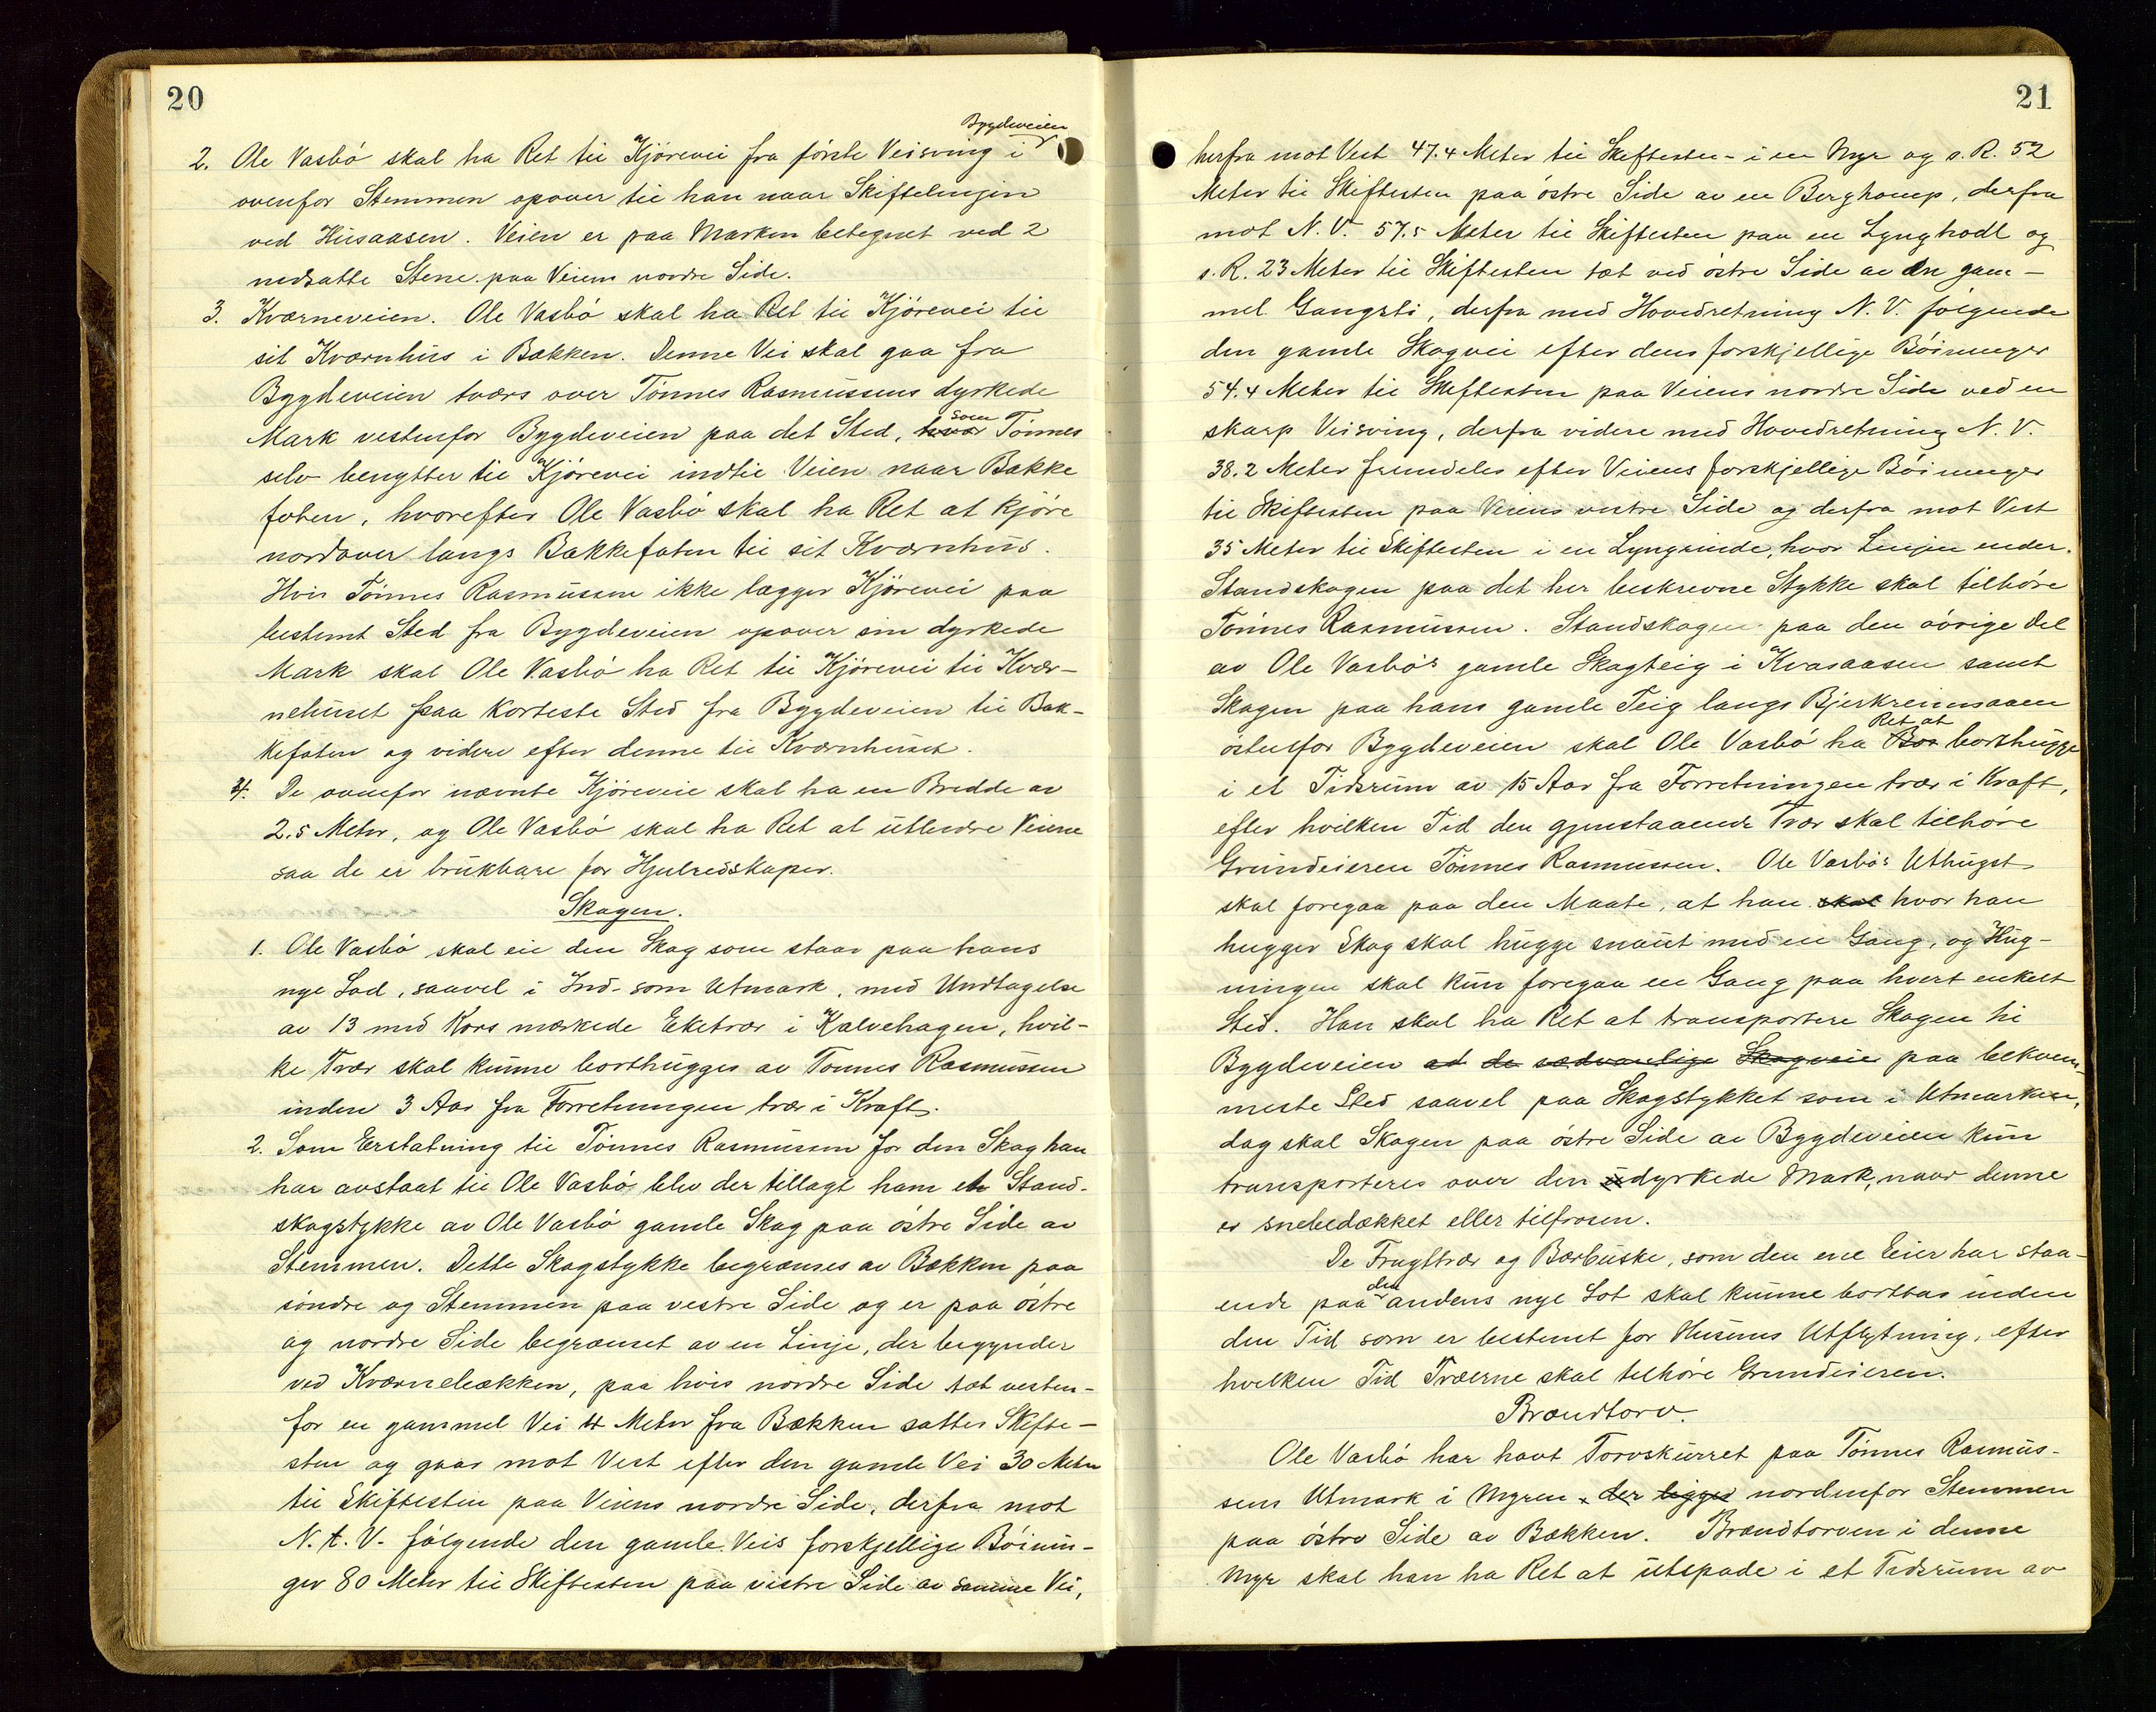 20
Bygdeveien
2. Ole Vasbö skal ha Ret til Kjörevei fra förste Veisving i
ovenfor Stemmen opover til han naar Skiftelinjen
ved Husaasen. Veien er paa Marken betegnet ved 2
nedsatte Stene paa Veiens nordre Side.
3. Kværneveien. Ole Vasbö skal ha Ret til Kjörevei til
sit Kværnhus i Bækken. Denne Vei skal gaa fra
Bygdeveien tværs over Tönnes Rasmussens dyrkede
Mark vestenfor Bygdeveien paa det Sted, hvor som Tönnes
selv benytter til Kjörevei indtil Veien naar Bakke
foten, hvorefter Ole Vasbö skal ha Ret at kjöre
nordover langs Bakkefoten til sit Kværnhus.
Hvis Tönnes Rasmussen ikke lægger Kjörevei paa
bestemt Sted fra Bygdeveien opover sin dyrkede
Mark skal Ole Vasbö ha Ret til Kjörevei til Kvær-
nehuset paa korteste Sted fra Bygdeveien til Bak-
kefoten og videre efter denne til Kværnhuset.
4. De ovenfor nævnte Kjöreveie skal ha en Bredde av
2.5 Meter, og Ole Vasbö skal ha Ret at utbedre Veiene
saa de er brukbare for Hjulredskaper.
Skogen.
1. Ole Vasbö skal eie den Skog som staar paa hans
nye Lod, saavel i Ind- som Utmark, med Undtagelse
av 13 med Kors mærkede Eketrær i Kalvehagen, hvil-
ke Trær skal kunne borthugges av Tönnes Rasmussen
inden 3 Aar fra Forretningen trær i Kraft.
2. Som Erstatning til Tönnes Rasmussen for den Skog han
har avstaat til Ole Vasbö blev der tillagt ham et Stand-
skogstykke av Ole Vasbö gamle Skog paa östre Side av
Stemmen. Dette Skogstykke begrænses av Bækken paa
söndre og Stemmen paa vestre Side og er paa östre
og nordre Side begrænset av en Linje, der begynder
ved Kværnebækken, paa hvis nordre Side tæt vesten-
for en gammel Vei 4 Meter fra Bækken sattes Skifte-
sten og gaar mot Vest efter den gamle Vei 30 Meter
til Skiftesten paa Veiens nordre Side, derfra mot
N. t. V. fölgende den gamle Veis forskjellige Böinin-
ger 80 Meter til Skiftesten paa vestre Side av samme Vei,
21
herfra mot Vest 47.4 Meter til Skiftesten i en Myr og s. R. 52
Meter til Skiftesten paa östre Side av en Berghomp, derfra
mot N. V. 57.5 Meter til Skiftesten paa en Lynghodl og
s. R. 23 Meter til Skiftesten tæt ved östre Side av en gam-
mel Gangsti, derfra med Hovedretning N. V. fölgende
den gamle Skogvei efter dens forskjellige Böininger
54.4 Meter til Skiftesten paa Veiens nordre Side ved en
skarp Veisving, derfra videre med Hovedretning N. V.
38.2 Meter fremdeles efter Veiens forskjellige Böininger
til Skiftesten paa Veiens vestre Side og derfra mot Vest
35 Meter til Skiftesten i en Lyngrinde, hvor Linjen ender.
Standskogen paa det her beskrevne Stykke skal tilhöre
Tönnes Rasmussen. Standskogen paa den övrige Del
av Ole Vasbö's gamle Skogteig i Kvasaasen samt
Skogen paa hans gamle Teig langs Bjerkreimsaaen
östenfor Bygdeveien skal Ole Vasbö ha Bor Ret at borthugge
i et Tidsrum av 15 Aar fra Forretningen trær i Kraft,
efter hvilken Tid den gjenstaaende Trær skal tilhöre
Grundeieren Tönnes Rasmussen. Ole Vasbö's Uthugst
skal foregaa paa den Maate, at han skal hvor han
hugger Skog skal hugge snaut med en Gang, og Hug-
ningen skal kun foregaa en Gang paa hvert enkelt
Sted. Han skal ha Ret at transportere Skogen til
Bygdeveien ad de sædvanlige Skogveie paa bekvem-
meste Sted saavel paa Skogstykket som i Utmarken,
dog skal Skogen paa östre Side av Bygdeveien kun
transporteres over den udyrkede Mark, naar denne
er snebedækket eller tilfrosen.
De Frugttrær og Bærbuske, som den ene Eier har staa-
ende paa den andens nye Lot skal kunne borttas inden
den Tid som er bestemt for Husenes Utflytning, efter
hvilken Tid Trærne skal tilhöre Grundeieren.
Brændtorv.
Ole Vasbö har havt Torvskurret paa Tönnes Rasmus-
sens Utmark i Myren, der ligger nordenfor Stemmen
paa östre Side av Bækken. Brændtorven i denne
Myr skal han ha Ret at utspade i et Tidsrum av